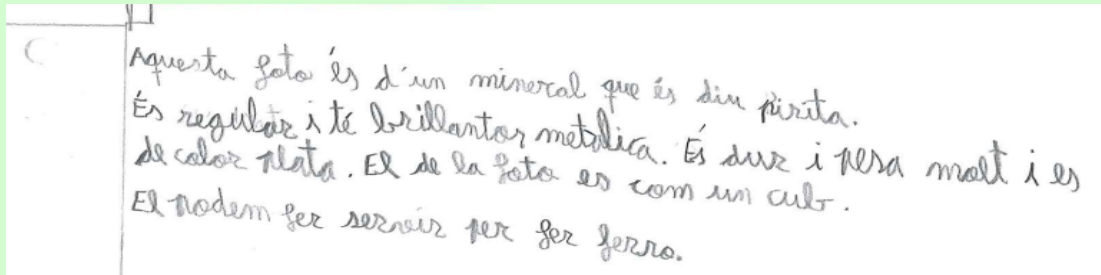 Aquesta foto és d'un mineral que és diu pirita.
És regular i té brillantor metàlica. És dur i pesa molt i es
de color plata. El de la foto es com un cub.
El podem fer serveir per fer ferro.